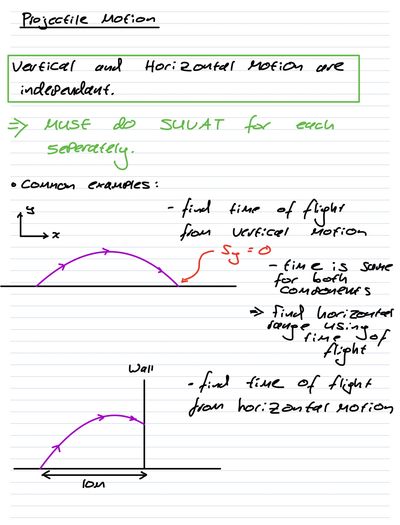 Projectile Motion
Vertical and Horizontal Motion are
independant.
⇒ MUST do SUVAT for each
seperately.
• Common examples:
y
x
- find time of flight
from vertical motion
Sy = 0
- time is same
for both
components
⇒ find horizontal
range using
time of
flight
Wall
- find time of flight
from horizontal motion
10m